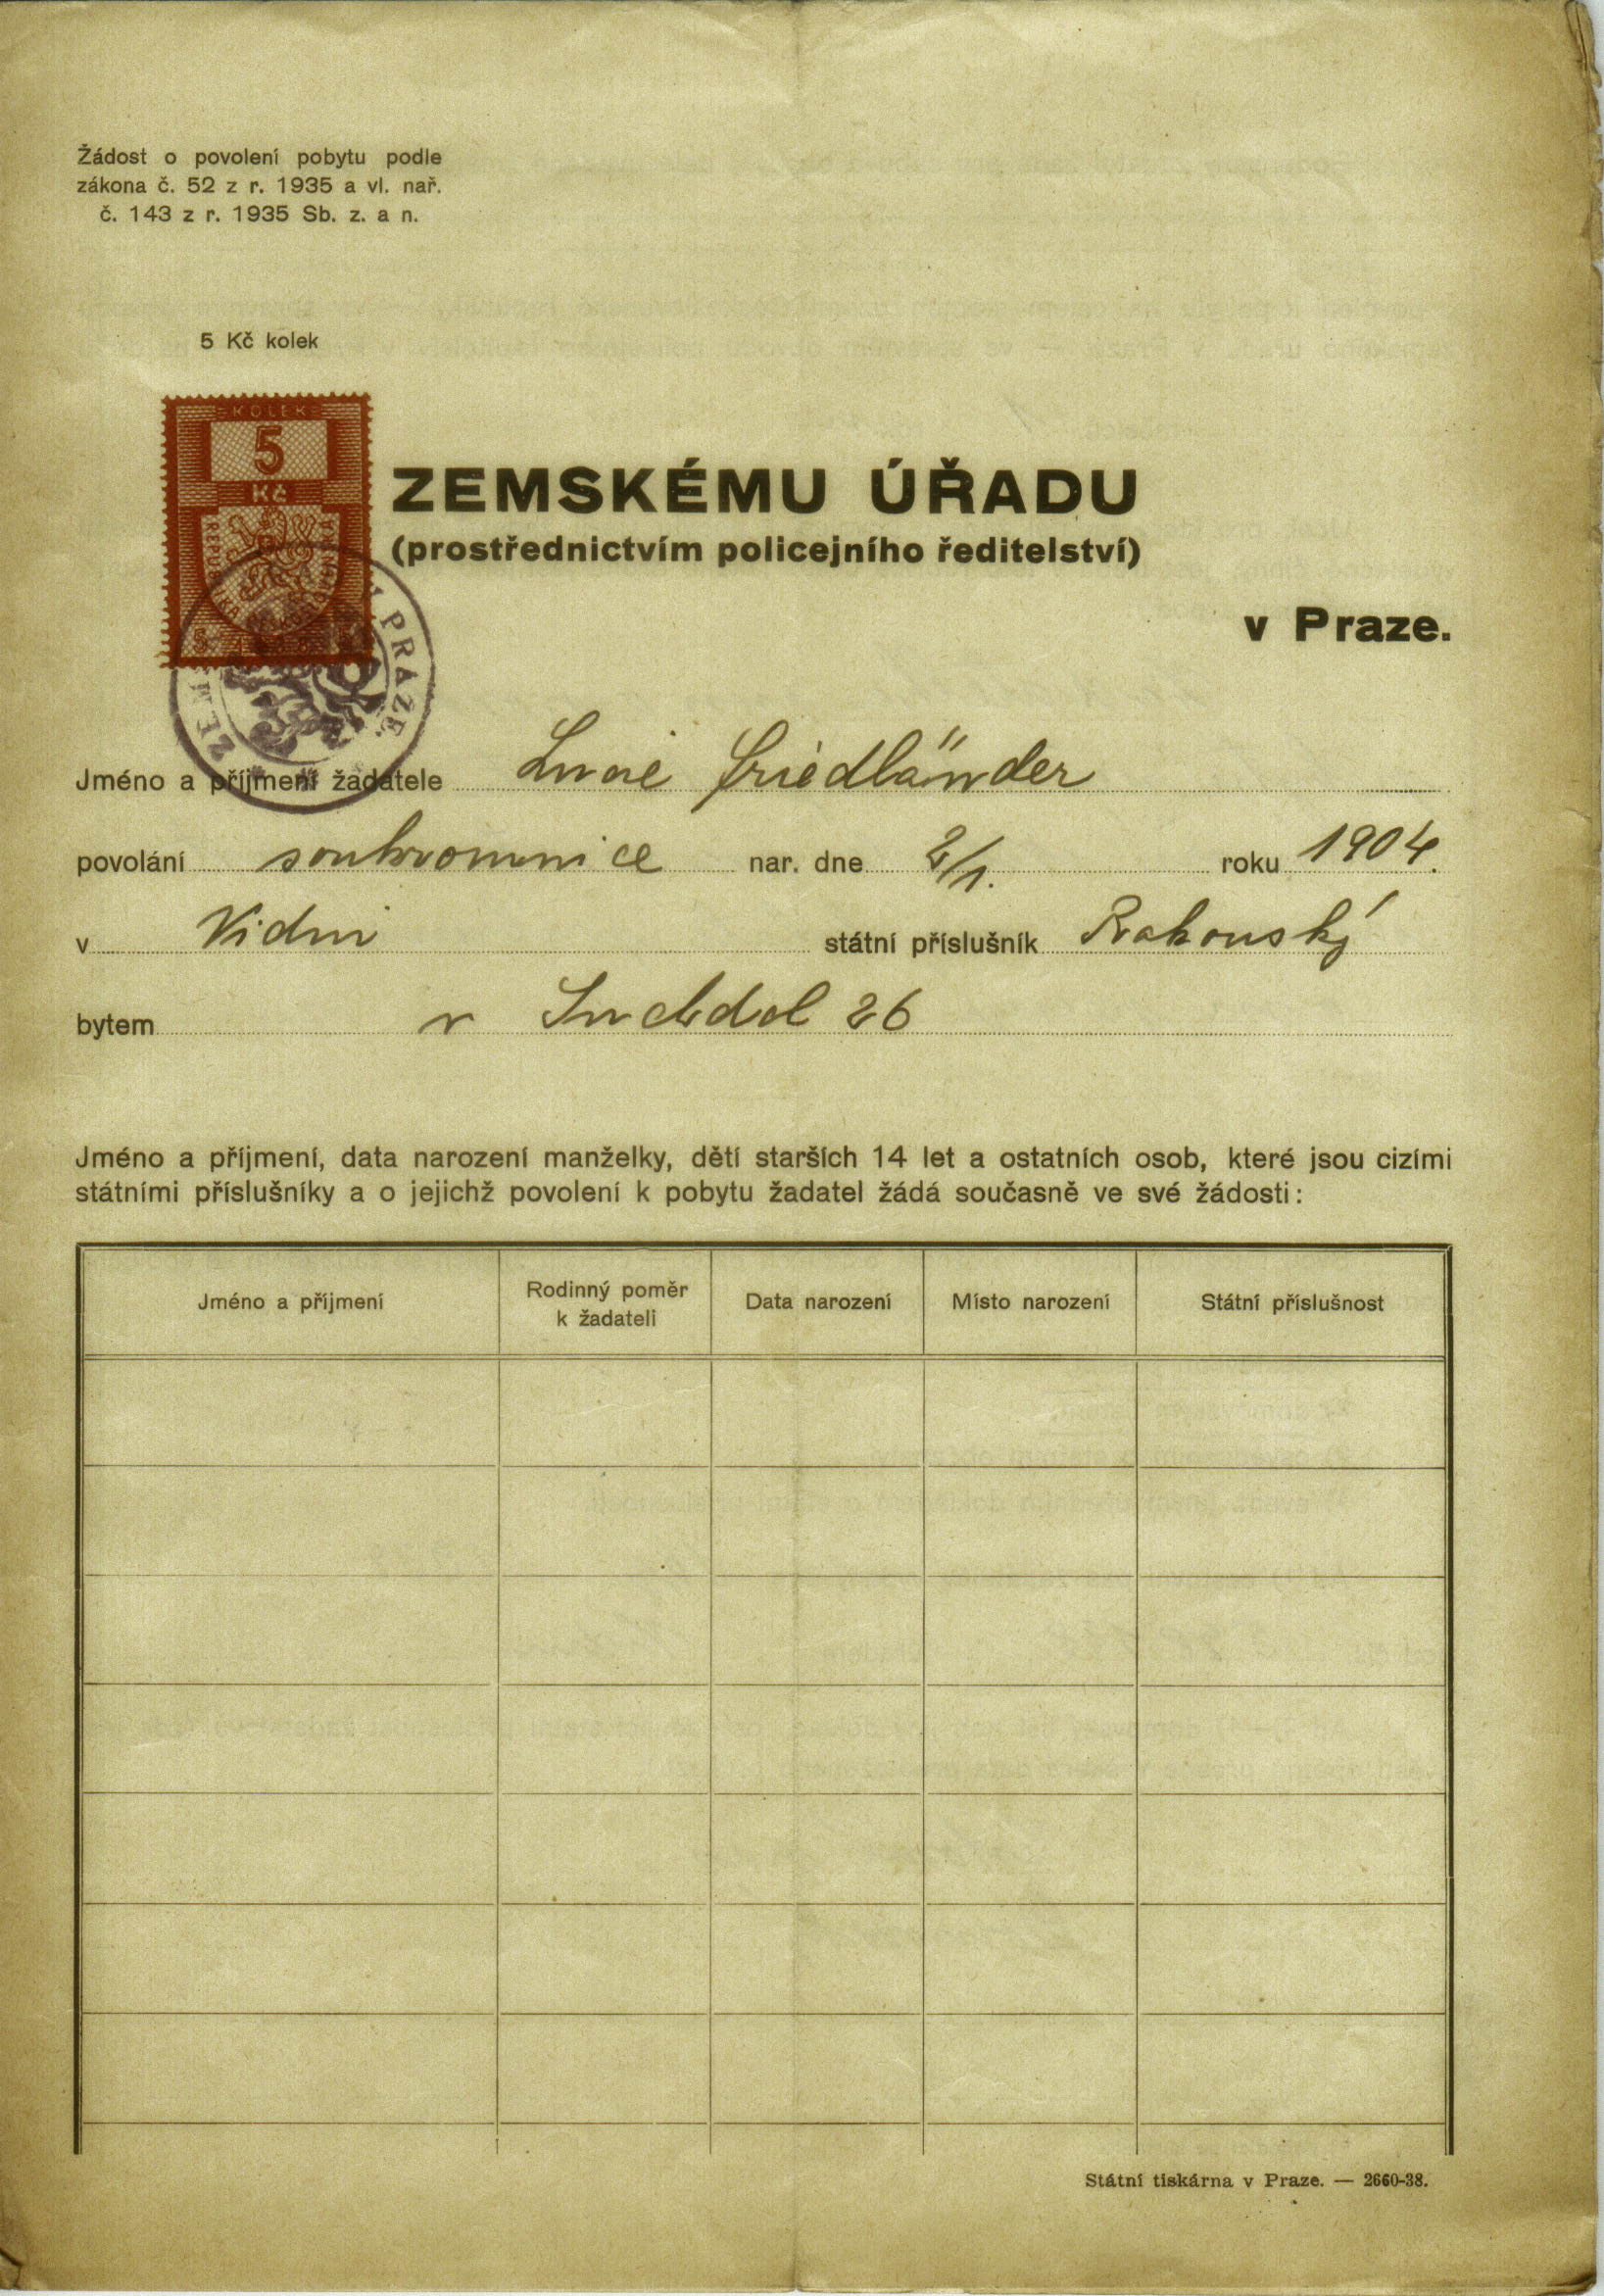 Žádost o povolení pobytu podle
zákona č. 52 z r. 1935 a vl. nař.
č. 143 z r. 1935 Sb. z. a n.
5 Kč kolek
KOLEK
5
Kč
ZEMSKÉMU ÚŘADU
(prostřednictvím policejního ředitelství)
v Praze.
V PRAZE.
Jméno a příjmení žadatele Lucie Friedländer
povolání soukromnice nar. dne 2/1. roku 1904.
v Vídni státní příslušník Rakouský
bytem v Suchdol 26
Jméno a příjmení, data narození manželky, dětí starších 14 let a ostatních osob, které jsou cizími
státními příslušníky a o jejichž povolení k pobytu žadatel žádá současně ve své žádosti:
Jméno a příjmení
Rodinný poměr
k žadateli
Data narození
Místo narození
Státní příslušnost
Státní tiskárna v Praze. — 2660-38.